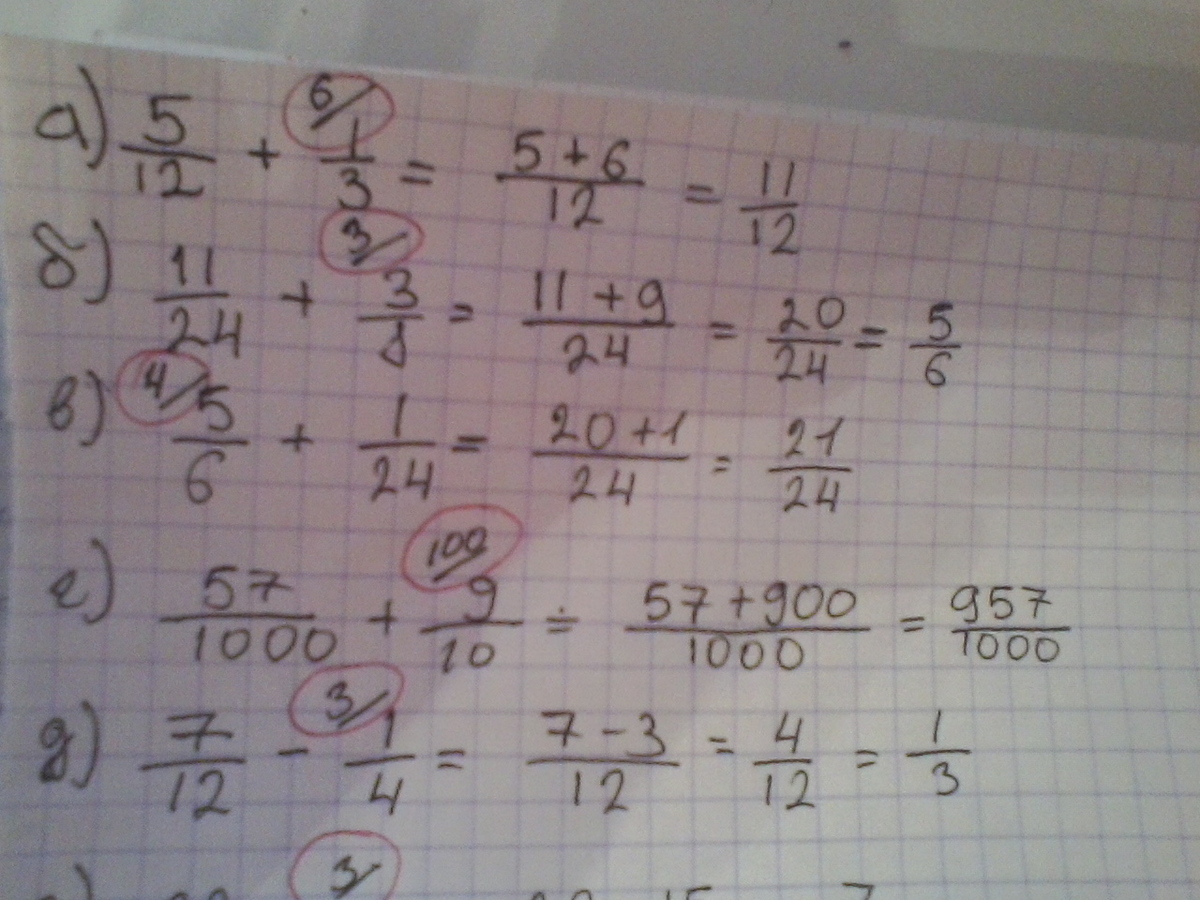 а) 5/12 + 6/ 1/3 = (5+6)/12 = 11/12
б) 11/24 + 3/ 3/8 = (11+9)/24 = 20/24 = 5/6
в) 4/ 5/6 + 1/24 = (20+1)/24 = 21/24
г) 57/1000 + 100/ 9/10 = (57+900)/1000 = 957/1000
д) 7/12 - 3/ 1/4 = (7-3)/12 = 4/12 = 1/3
3/